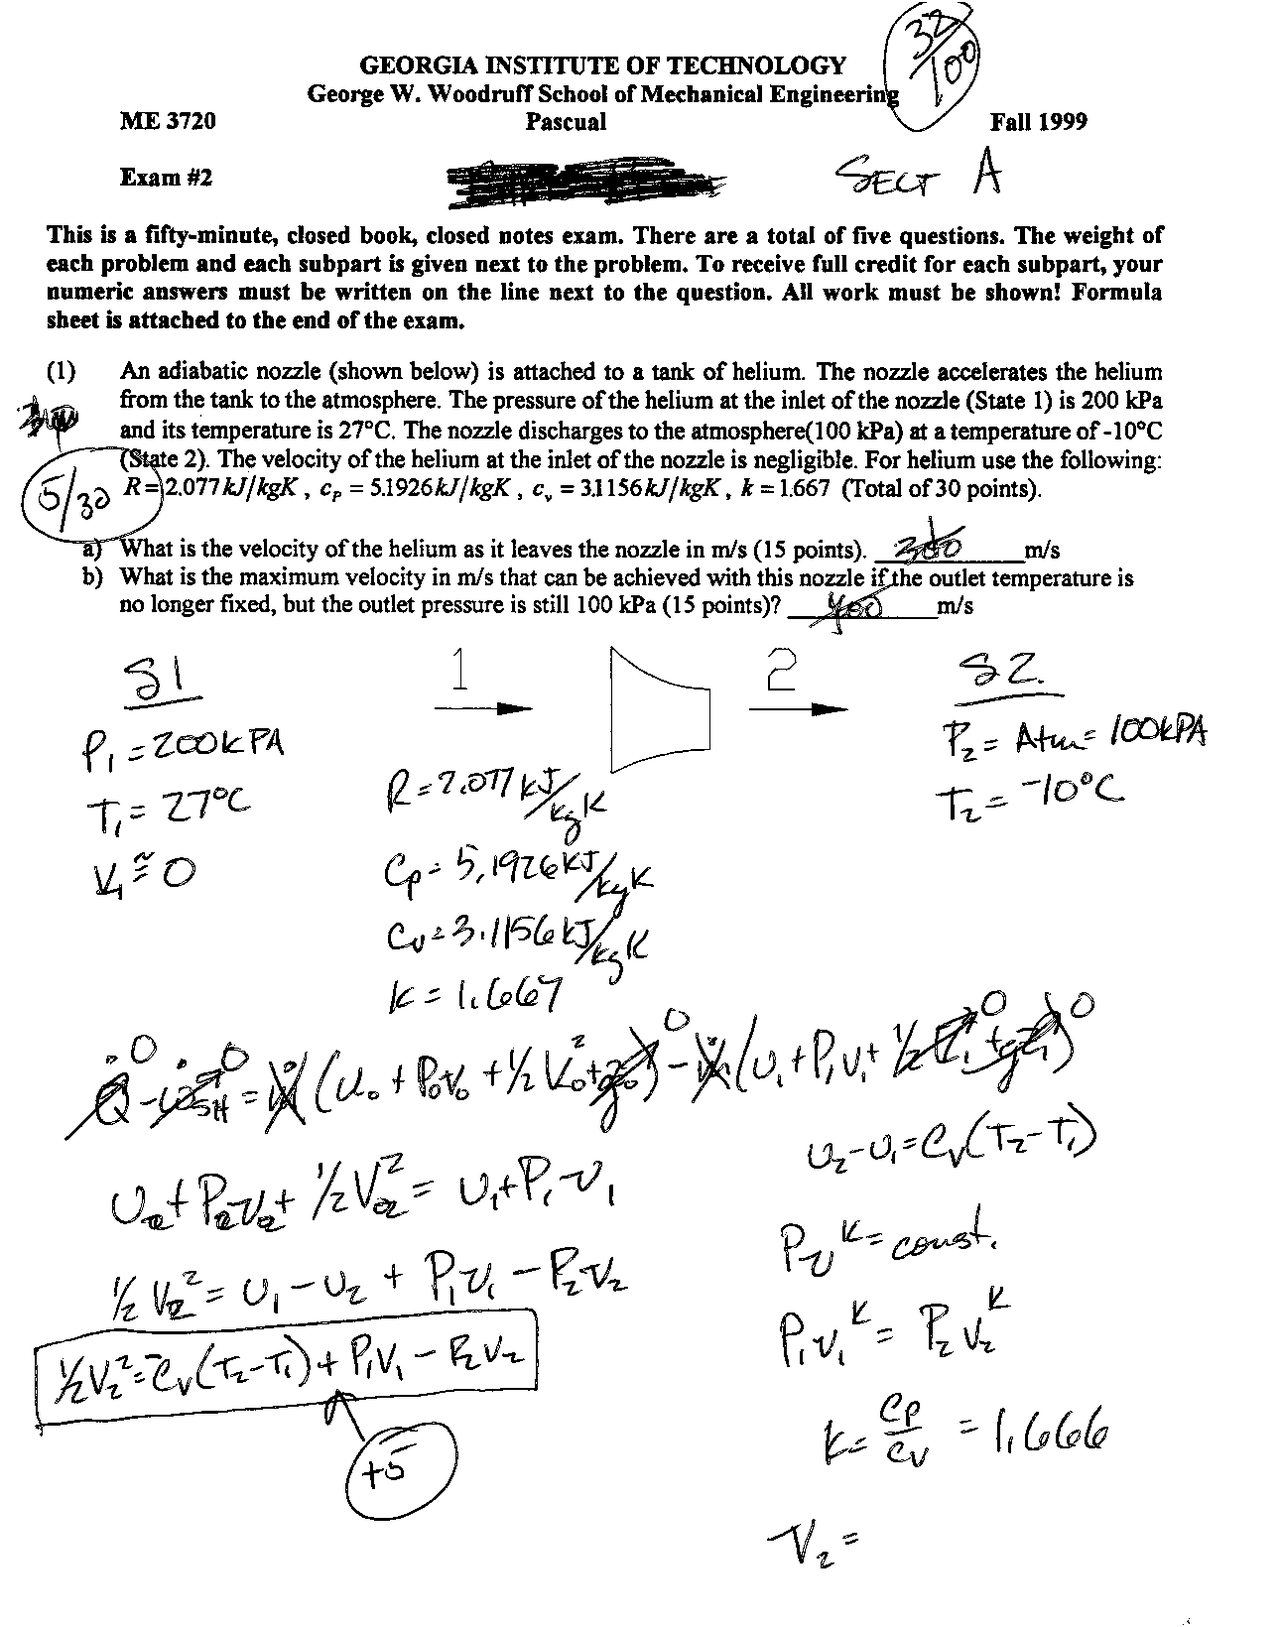 32/100
GEORGIA INSTITUTE OF TECHNOLOGY
George W. Woodruff School of Mechanical Engineering
ME 3720 Pascual Fall 1999
Exam #2 SECT A
This is a fifty-minute, closed book, closed notes exam. There are a total of five questions. The weight of
each problem and each subpart is given next to the problem. To receive full credit for each subpart, your
numeric answers must be written on the line next to the question. All work must be shown! Formula
sheet is attached to the end of the exam.
(1) An adiabatic nozzle (shown below) is attached to a tank of helium. The nozzle accelerates the helium
from the tank to the atmosphere. The pressure of the helium at the inlet of the nozzle (State 1) is 200 kPa
and its temperature is 27°C. The nozzle discharges to the atmosphere(100 kPa) at a temperature of -10°C
(State 2). The velocity of the helium at the inlet of the nozzle is negligible. For helium use the following:
5/30 R = 2.077 kJ/kgK , c_p = 5.1926 kJ/kgK , c_v = 3.1156 kJ/kgK , k = 1.667 (Total of 30 points).
a) What is the velocity of the helium as it leaves the nozzle in m/s (15 points). 300 m/s
b) What is the maximum velocity in m/s that can be achieved with this nozzle if the outlet temperature is
no longer fixed, but the outlet pressure is still 100 kPa (15 points)? 400 m/s
S1 1 2 S2.
P₁ = 200kPA
T₁ = 27°C
V₁ ≅ 0
R = 2.077 kJ/kgK
Cp = 5.1926 kJ/kgK
Cv = 3.1156 kJ/kgK
k = 1.667
P₂ = Atm = 100kPA
T₂ = -10°C
Q̇ 0 - ẇSH 0 = ṁ(u₀ + P₀v₀ + ½V₀² + gz₀) 0 - ṁ(u₁ + P₁v₁ + ½V₁² 0 + gz₁) 0
u₂ + P₂v₂ + ½V₂² = u₁ + P₁v₁
½V₂² = u₁ - u₂ + P₁v₁ - P₂v₂
½V₂² = Cv(T₂-T₁) + P₁v₁ - P₂v₂
+5
u₂ - u₁ = Cv(T₂-T₁)
Pv^k = const.
P₁v₁^k = P₂v₂^k
k = Cp/Cv = 1.666
V₂ =